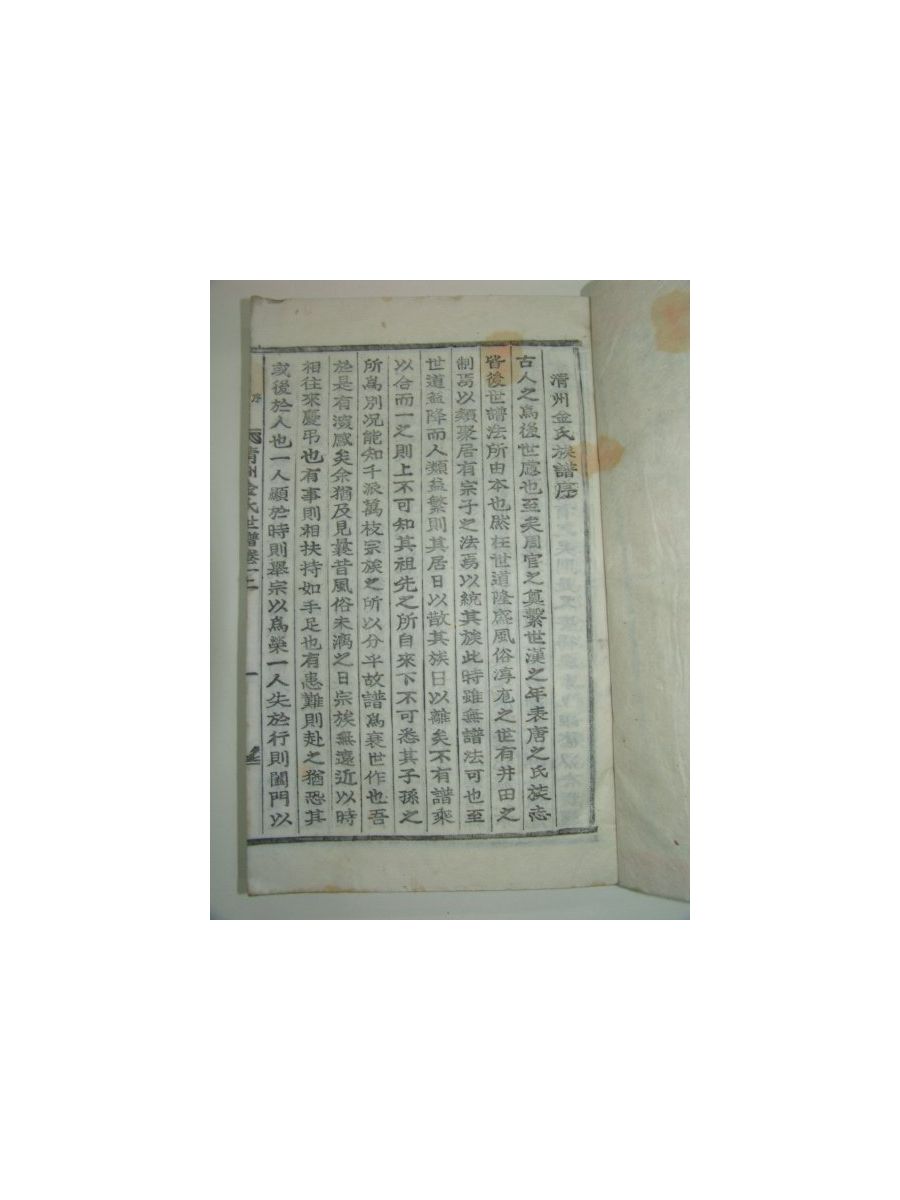 清州金氏族譜序
古人之爲後世慮也至矣周官之奠繫世漢之年表唐之氏族志
皆後世譜法所由本也然在世道隆盛風俗淳厖之世有井田之
制焉以類聚居有宗子之法焉以統其族此時雖無譜法可也至
世道益降而人類益繁則其居日以散其族日以離矣不有譜乘
以合而一之則上不可知其祖先之所自來下不可悉其子孫之
所爲別况能知千派萬枝宗族之所以分乎故譜爲衰世作也吾
於是有感矣余猶及見曩昔風俗未漓之日宗族無遠近以時
相往來慶弔也有事則相扶持如手足也有患難則赴之猶恐其
或後於人也一人顯於時則擧宗以爲榮一人失於行則闔門以
序 淸州金氏世譜卷一上 一